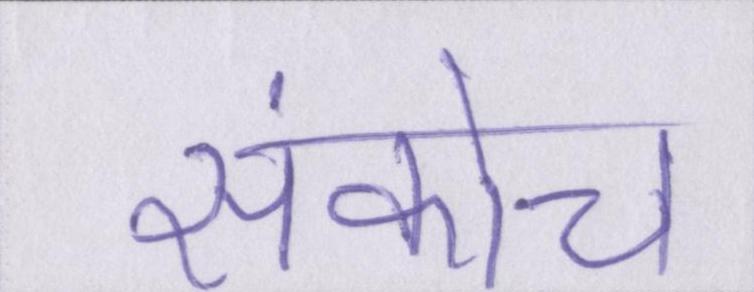 संकोच